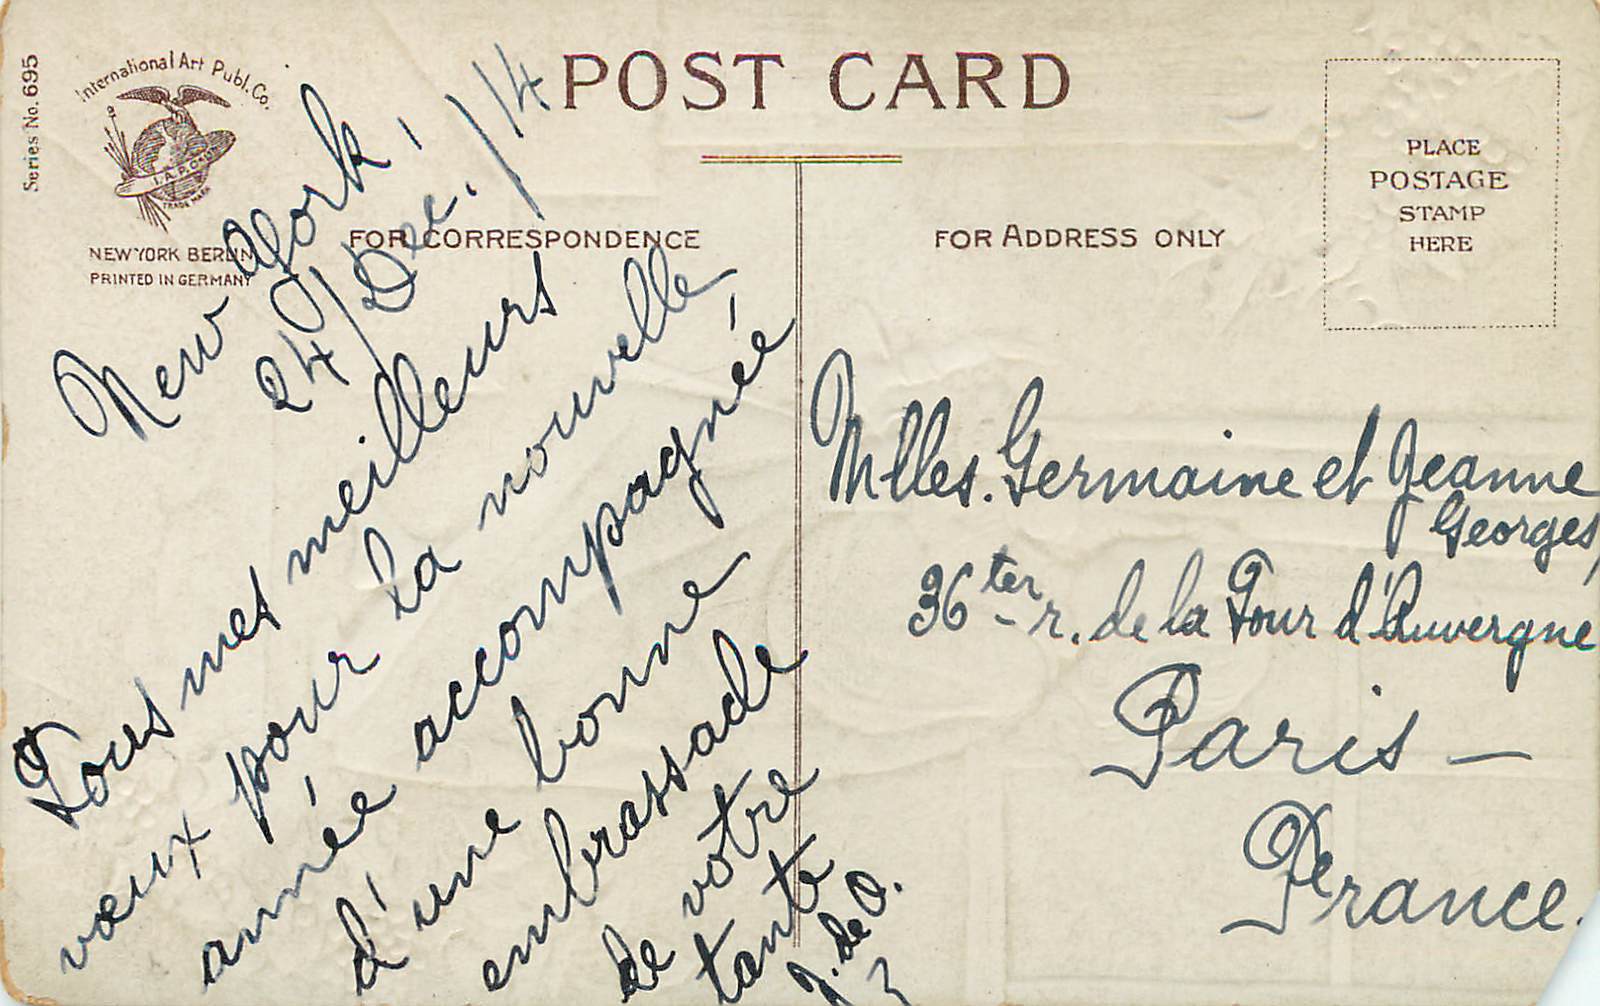 Series No. 695
International Art Publ. Co.
I.A.P.Co.
TRADE MARK
NEW YORK BERLIN
PRINTED IN GERMANY
POST CARD
FOR CORRESPONDENCE
FOR ADDRESS ONLY
PLACE
POSTAGE
STAMP
HERE
New York,
24/Dec./14
Tous mes meilleurs
vœux pour la nouvelle
année accompagnée
d'une bonne
embrassade
de votre
tante
J. de O.
Mlles. Germaine et Jeanne
Georges,
36 ter r. de la Tour d'Auvergne
Paris —
France.